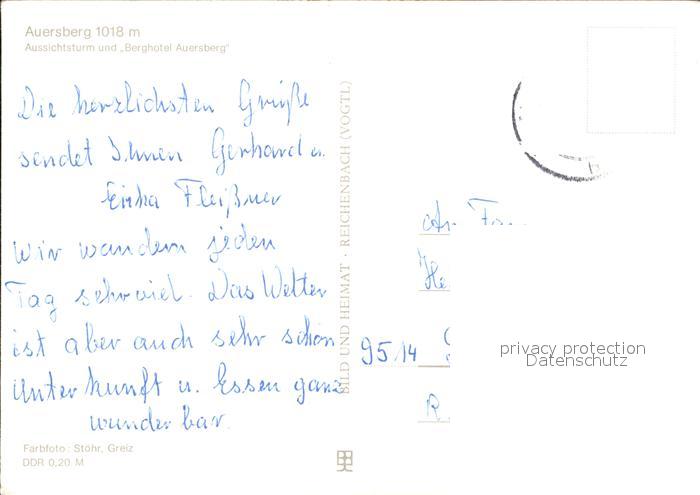 Auersberg 1018 m
Aussichtsturm und „Berghotel Auersberg"
Die herzlichsten Grüße
sendet Ihnen Gerhard u.
Erika Fleißner
Wir wandern jeden
Tag sehr viel. Das Wetter
ist aber auch sehr schön
Unterkunft u. Essen ganz
wunderbar.
Farbfoto: Stöhr, Greiz
DDR 0,20 M
BILD UND HEIMAT · REICHENBACH (VOGTL)
An
9514
R
privacy protection
Datenschutz